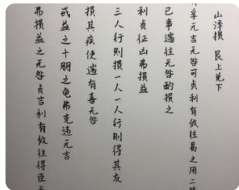 山澤損 艮上兌下
孚元吉无咎可貞利有攸往曷之用二
已事遄往无咎酌損之
利貞征凶弗損益
三人行則損一人一人行則得其友
損其疾使遄有喜无咎
或益之十朋之龜弗克違元吉
弗損益之无咎貞吉利有攸往得臣无